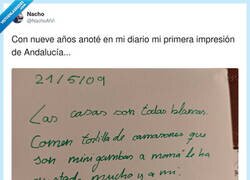 Nacho
@NachoAlVi
Con nueve años anoté en mi diario mi primera impresión
de Andalucía...
21/5/09
Las casas son todas blancas.
Comen tortilla de camarones que
son mini gambas a mamá le ha
mucho y a mi.